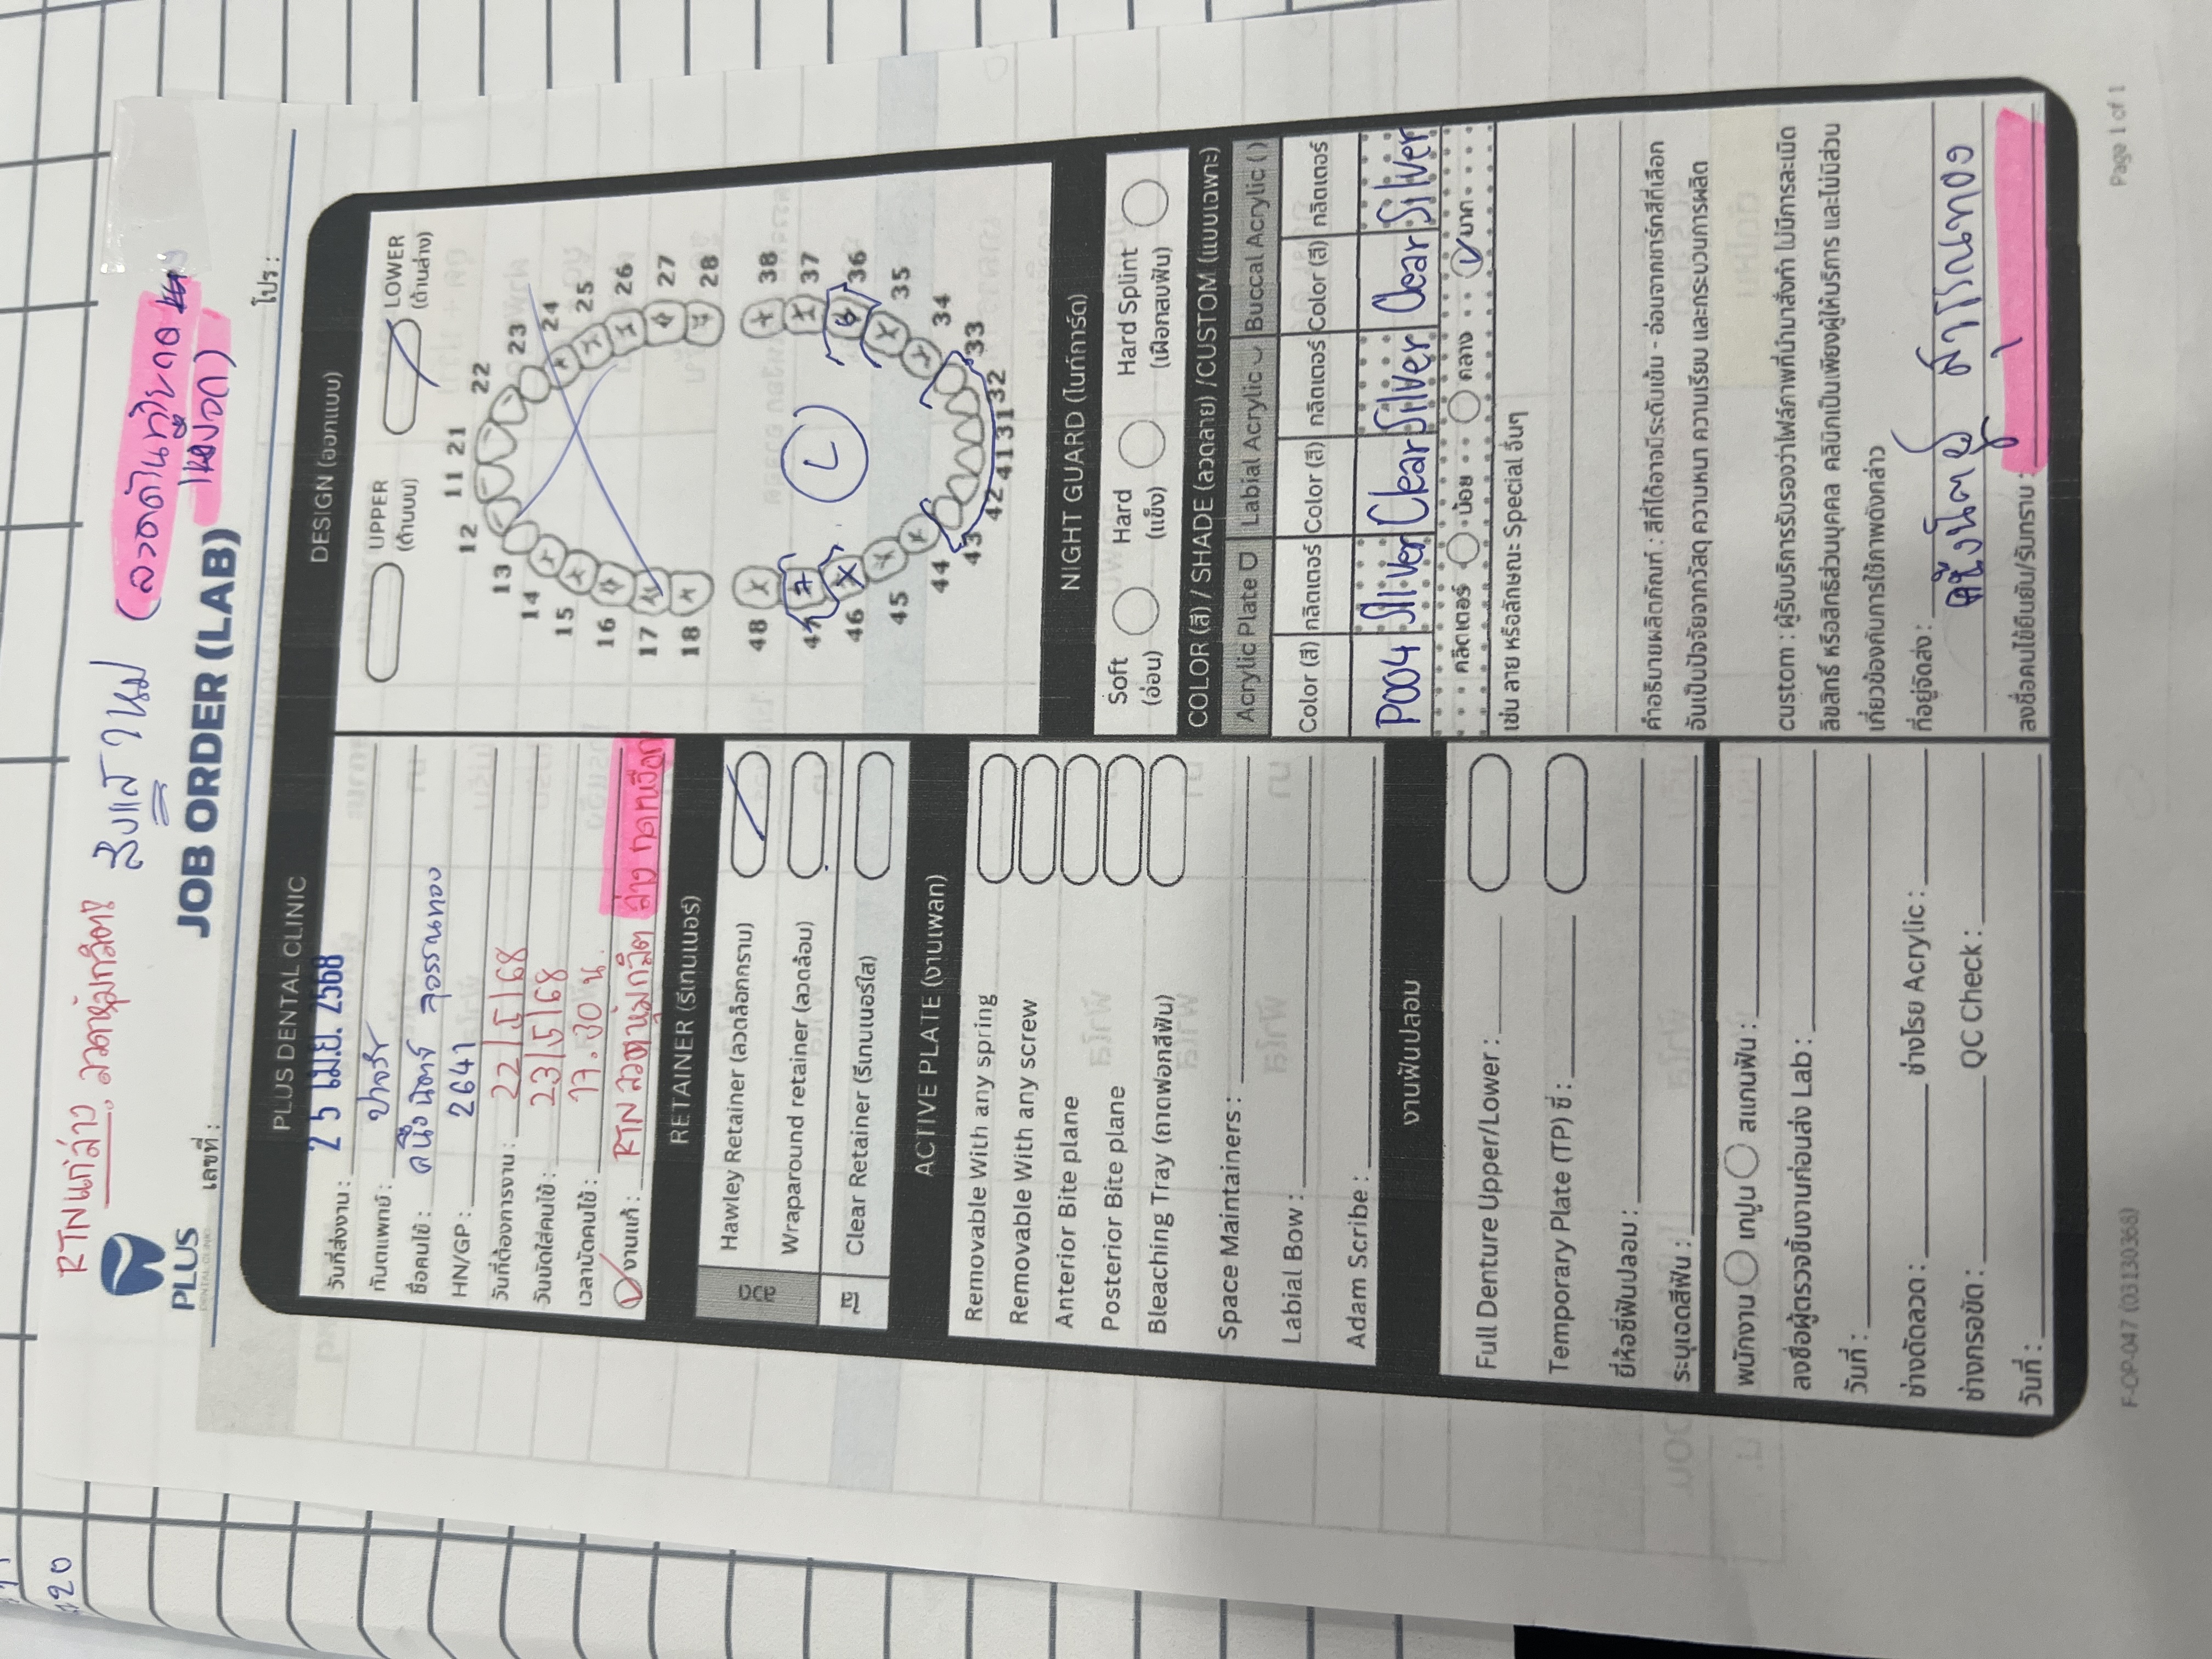 RTNแก้ล่าง ลวดหุ้มกลิต
(ลวดดันทู่ไขกด
เหงือก)
PLUS
DENTAL CLINIC
JOB ORDER (LAB)
เลขที่ :
โปร :
PLUS DENTAL CLINIC
วันที่ส่งงาน : 2 5 เม.ย. 2568
ทันตแพทย์ :
ชื่อคนไข้ : สุวรรณทอง
HN/GP : 2641
วันที่ต้องการงาน : 22/5/68
วันนัดใส่คนไข้ : 23/5/68
เวลานัดคนไข้ : 17.30 น.
งานแก้ : RTN ลวดหุ้มกลิต ล่าง กดเหงือก
RETAINER (รีเทนเนอร์)
ลวด
Hawley Retainer (ลวดล็อกกราม)
Wraparound retainer (ลวดล้อม)
ใส
Clear Retainer (รีเทนเนอร์ใส)
ACTIVE PLATE (งานเพลท)
Removable With any spring
Removable With any screw
Anterior Bite plane
Posterior Bite plane
Bleaching Tray (ถาดฟอกสีฟัน)
Space Maintainers :
Labial Bow :
Adam Scribe :
งานฟันปลอม
Full Denture Upper/Lower :
Temporary Plate (TP) ซี่ :
ยี่ห้อซี่ฟันปลอม :
ระบุเฉดสีฟัน :
พนักงาน เทปูน สแกนฟัน :
ลงชื่อผู้ตรวจชิ้นงานก่อนส่ง Lab :
วันที่ :
ช่างดัดลวด : ช่างโรย Acrylic :
ช่างกรอขัด : QC Check :
วันที่ :
DESIGN (ออกแบบ)
UPPER
(ด้านบน)
LOWER
(ด้านล่าง)
12 11 21 22
13 23
14 24
15 25
16 26
17 27
18 28
L
48 38
47 37
46 36
45 35
44 34
43 33
42 41 31 32
NIGHT GUARD (ไนท์การ์ด)
Soft
(อ่อน)
Hard
(แข็ง)
Hard Splint
(เฝือกสบฟัน)
COLOR (สี) / SHADE (ลวดลาย) /CUSTOM (แบบเฉพาะ)
Acrylic Plate Labial Acrylic Buccal Acrylic ( )
Color (สี) กลิตเตอร์ Color (สี) กลิตเตอร์ Color (สี) กลิตเตอร์
P004 Silver Clear Silver Clear Silver
กลิตเตอร์ น้อย กลาง มาก
เช่น ลาย หรือลักษณะ Special อื่นๆ
คำอธิบายผลิตภัณฑ์ : สีที่ได้อาจมีระดับเข้ม - อ่อนจากชาร์ทสีที่เลือก
อันเป็นปัจจัยจากวัสดุ ความหนา ความเรียบ และกระบวนการผลิต
custom : ผู้รับบริการรับรองว่าไฟล์ภาพที่นำมาสั่งทำ ไม่มีการละเมิด
ลิขสิทธิ์ หรือสิทธิส่วนบุคคล คลินิกเป็นเพียงผู้ให้บริการ และไม่มีส่วน
เกี่ยวข้องกับการใช้ภาพดังกล่าว
ที่อยู่จัดส่ง :
สุวรรณทอง
ลงชื่อคนไข้ยืนยัน/รับทราบ :
F-OP-047 (03130368)
Page 1 of 1